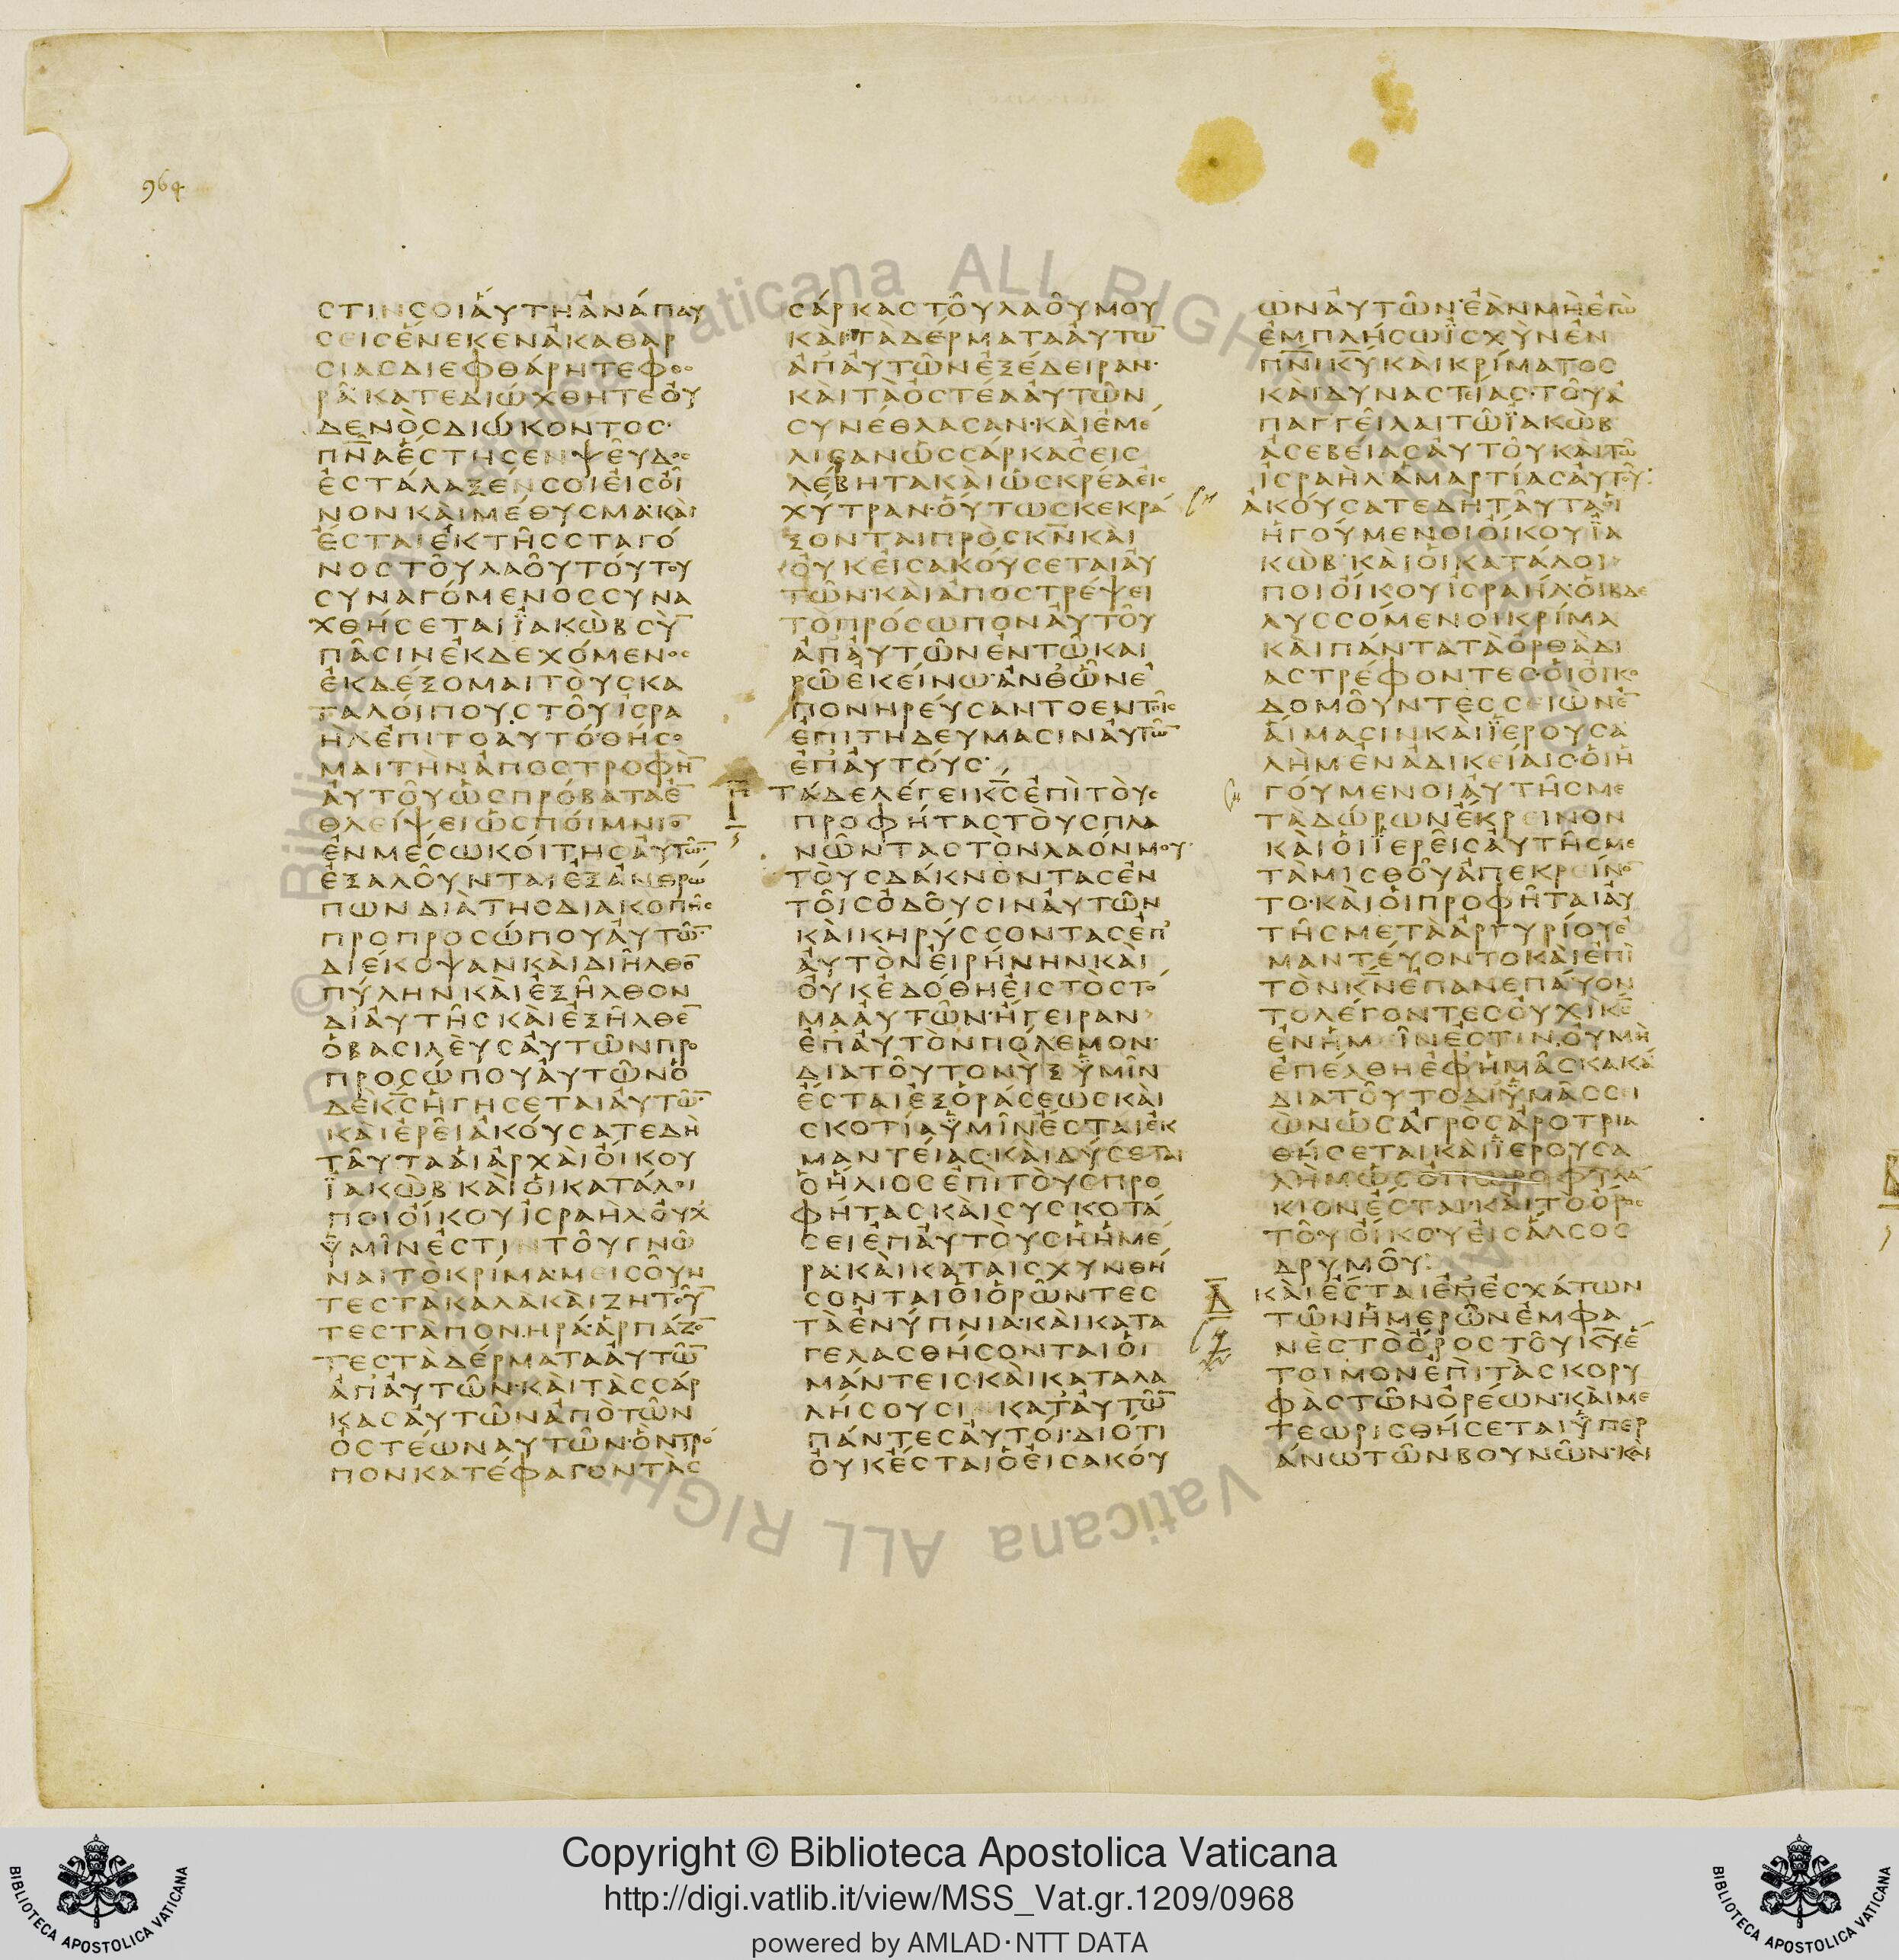 964
ϹΤΙΝϹΟΙΑΥΤΗΑΝΑΠΑΥ
ϹΕΙϹΕΝΕΚΕΝΑΚΑΘΑΡ
ϹΙΑϹΔΙΕΦΘΑΡΗΤΕΦΘΟ
ΡΑ·ΚΑΤΕΔΙΩΧΘΗΤΕΟΥ
ΔΕΝΟϹΔΙΩΚΟΝΤΟϹ·
ΠΝ̅ΑΕϹΤΗϹΕΝΨΕΥΔΟϹ
ΕϹΤΑΛΑΞΕΝϹΟΙΕΙϹΟΙ
ΝΟΝΚΑΙΜΕΘΥϹΜΑ·ΚΑΙ
ΕϹΤΑΙΕΚΤΗϹϹΤΑΓΟ
ΝΟϹΤΟΥΛΑΟΥΤΟΥΤΟΥ
ϹΥΝΑΓΟΜΕΝΟϹϹΥΝΑ
ΧΘΗϹΕΤΑΙΪΑΚΩΒϹΥ̅
ΠΑϹΙΝΕΚΔΕΧΟΜΕΝΟϹ
ΕΚΔΕΞΟΜΑΙΤΟΥϹΚΑ
ΤΑΛΟΙΠΟΥϹΤΟΥΙϹΡΑ
ΗΛΕΠΙΤΟΑΥΤΟ·ΘΗϹΟ
ΜΑΙΤΗΝΑΠΟϹΤΡΟΦΗ̅
ΑΥΤΟΥΩϹΠΡΟΒΑΤΑΕ̅
ΘΛΕΙΨΕΙΩϹΠΟΙΜΝΙΟ̅
ΕΝΜΕϹΩΚΟΙΤΗϹΑΥΤΩ̅·
ΕΞΑΛΟΥΝΤΑΙΕΞΑΝΘΡΩ
ΠΩΝΔΙΑΤΗϹΔΙΑΚΟΠΗϹ
ΠΡΟΠΡΟϹΩΠΟΥΑΥΤΩ̅·
ΔΙΕΚΟΨΑΝΚΑΙΔΙΗΛΘΟ̅
ΠΥΛΗΝΚΑΙΕΞΗΛΘΟΝ
ΔΙΑΥΤΗϹΚΑΙΕΞΗΛΘΕ̅
ΟΒΑϹΙΛΕΥϹΑΥΤΩΝΠΡΟ
ΠΡΟϹΩΠΟΥΑΥΤΩΝΟ
ΔΕΚ̅Ϲ̅ΗΓΗϹΕΤΑΙΑΥΤΩ̅·
ΚΑΙΕΡΕΙΑΚΟΥϹΑΤΕΔΗ
ΤΑΥΤΑΑΙΑΡΧΑΙΟΙΚΟΥ
ΪΑΚΩΒΚΑΙΟΙΚΑΤΑΛΟΙ
ΠΟΙΟΙΚΟΥΙϹΡΑΗΛΟΥΧ
ΫΜΙΝΕϹΤΙΝΤΟΥΓΝΩ
ΝΑΙΤΟΚΡΙΜΑ·ΜΕΙϹΟΥΝ
ΤΕϹΤΑΚΑΛΑΚΑΙΖΗΤΟΥ̅
ΤΕϹΤΑΠΟΝΗΡΑ·ΑΡΠΑΖΟ̅
ΤΕϹΤΑΔΕΡΜΑΤΑΑΥΤΩ̅
ΑΠΑΥΤΩΝ·ΚΑΙΤΑϹϹΑΡ
ΚΑϹΑΥΤΩΝΑΠΟΤΩΝ
ΟϹΤΕΩΝΑΥΤΩΝ·ΟΝΤΡΟ
ΠΟΝΚΑΤΕΦΑΓΟΝΤΑϹ
ϹΑΡΚΑϹΤΟΥΛΑΟΥΜΟΥ
ΚΑΙΤΑΔΕΡΜΑΤΑΑΥΤΩ̅
ΑΠΑΥΤΩΝΕΞΕΔΕΙΡΑΝ·
ΚΑΙΤΑΟϹΤΕΑΑΥΤΩΝ
ϹΥΝΕΘΛΑϹΑΝ·ΚΑΙΕΜΕ
ΛΙϹΑΝΩϹϹΑΡΚΑϹΕΙϹ
ΛΕΒΗΤΑΚΑΙΩϹΚΡΕΑΕΙϹ
ΧΥΤΡΑΝ·ΟΥΤΩϹΚΕΚΡΑ
ΞΟΝΤΑΙΠΡΟϹΚ̅Ν̅ΚΑΙ
ΟΥΚΕΙϹΑΚΟΥϹΕΤΑΙΑΥ
ΤΩΝ·ΚΑΙΑΠΟϹΤΡΕΨΕΙ
ΤΟΠΡΟϹΩΠΟΝΑΥΤΟΥ
ΑΠΑΥΤΩΝΕΝΤΩΚΑΙ
ΡΩΕΚΕΙΝΩ·ΑΝΘΩΝΕ
ΠΟΝΗΡΕΥϹΑΝΤΟΕΝΤΟΙϹ
ΕΠΙΤΗΔΕΥΜΑϹΙΝΑΥΤΩ̅
ΕΠΑΥΤΟΥϹ·
ΤΑΔΕΛΕΓΕΙΚ̅Ϲ̅ΕΠΙΤΟΥϹ
ΠΡΟΦΗΤΑϹΤΟΥϹΠΛΑ
ΝΩΝΤΑϹΤΟΝΛΑΟΝΜΟΥ·
ΤΟΥϹΔΑΚΝΟΝΤΑϹΕΝ
ΤΟΙϹΟΔΟΥϹΙΝΑΥΤΩΝ
ΚΑΙΚΗΡΥϹϹΟΝΤΑϹΕΠ
ΑΥΤΟΝΕΙΡΗΝΗΝΚΑΙ
ΟΥΚΕΔΟΘΗΕΙϹΤΟϹΤΟ
ΜΑΑΥΤΩΝ·ΗΓΕΙΡΑΝ
ΕΠΑΥΤΟΝΠΟΛΕΜΟΝ·
ΔΙΑΤΟΥΤΟΝΥΞΫΜΙΝ
ΕϹΤΑΙΕΞΟΡΑϹΕΩϹΚΑΙ
ϹΚΟΤΙΑΫΜΙΝΕϹΤΑΙΕΚ
ΜΑΝΤΕΙΑϹ·ΚΑΙΔΥϹΕΤΑΙ
ΟΗΛΙΟϹΕΠΙΤΟΥϹΠΡΟ
ΦΗΤΑϹΚΑΙϹΥϹΚΟΤΑ
ϹΕΙΕΠΑΥΤΟΥϹΗΗΜΕ
ΡΑ·ΚΑΙΚΑΤΑΙϹΧΥΝΘΗ
ϹΟΝΤΑΙΟΙΟΡΩΝΤΕϹ
ΤΑΕΝΥΠΝΙΑ·ΚΑΙΚΑΤΑ
ΓΕΛΑϹΘΗϹΟΝΤΑΙΟΙ
ΜΑΝΤΕΙϹ·ΚΑΙΚΑΤΑΛΑ
ΛΗϹΟΥϹΙΝΚΑΤΑΥΤΩ̅
ΠΑΝΤΕϹΑΥΤΟΙ·ΔΙΟΤΙ
ΟΥΚΕϹΤΑΙΟΕΙϹΑΚΟΥ
ΩΝΑΥΤΩΝ·ΕΑΝΜΗΕΓΩ
ΕΜΠΛΗϹΩΙϹΧΥΝΕΝ
ΠΝ̅ΙΚ̅Υ̅ΚΑΙΚΡΙΜΑΤΟϹ
ΚΑΙΔΥΝΑϹΤΕΙΑϹ·ΤΟΥΑ
ΠΑΓΓΕΙΛΑΙΤΩΪΑΚΩΒ
ΑϹΕΒΕΙΑϹΑΥΤΟΥΚΑΙΤΩ
ΙϹΡΑΗΛΑΜΑΡΤΙΑϹΑΥΤΟΥ:
ΑΚΟΥϹΑΤΕΔΗΤΑΥΤΑΟΙ
ΗΓΟΥΜΕΝΟΙΟΙΚΟΥΪΑ
ΚΩΒ·ΚΑΙΟΙΚΑΤΑΛΟΙ
ΠΟΙΟΙΚΟΥΙϹΡΑΗΛ·ΟΙΒΔΕ
ΛΥϹϹΟΜΕΝΟΙΚΡΙΜΑ
ΚΑΙΠΑΝΤΑΤΑΟΡΘΑΔΙ
ΑϹΤΡΕΦΟΝΤΕϹ·ΟΙΟΙΚΟ
ΔΟΜΟΥΝΤΕϹϹΕΙΩΝΕ̅
ΑΙΜΑϹΙΝΚΑΙΪΕΡΟΥϹΑ
ΛΗΜΕΝΑΔΙΚΕΙΑΙϹ·ΟΙΗ
ΓΟΥΜΕΝΟΙΑΥΤΗϹΜΕ
ΤΑΔΩΡΩΝΕΚΡΕΙΝΟΝ
ΚΑΙΟΙΪΕΡΕΙϹΑΥΤΗϹΜΕ
ΤΑΜΙϹΘΟΥΑΠΕΚΡΕΙΝΟ̅
ΤΟ·ΚΑΙΟΙΠΡΟΦΗΤΑΙΑΥ
ΤΗϹΜΕΤΑΑΡΓΥΡΙΟΥΕ
ΜΑΝΤΕΥΟΝΤΟΚΑΙΕΠΙ
ΤΟΝΚ̅Ν̅ΕΠΑΝΕΠΑΥΟΝ
ΤΟΛΕΓΟΝΤΕϹΟΥΧΙΚ̅Ϲ̅
ΕΝΗΜΙΝΕϹΤΙΝ·ΟΥΜΗ
ΕΠΕΛΘΗΕΦΗΜΑϹΚΑΚΑ
ΔΙΑΤΟΥΤΟΔΙΫΜΑϹϹΕΙ
ΩΝΩϹΑΓΡΟϹΑΡΟΤΡΙΑ
ΘΗϹΕΤΑΙΚΑΙΪΕΡΟΥϹΑ
ΛΗΜΩϹΟΠΩΡΟΦΥΛΑ
ΚΙΟΝΕϹΤΑΙ·ΚΑΙΤΟΟΡΟϹ
ΤΟΥΟΙΚΟΥΕΙϹΑΛϹΟϹ
ΔΡΥΜΟΥ:
Δ̅
ΚΑΙΕϹΤΑΙΕΠΕϹΧΑΤΩΝ
ΤΩΝΗΜΕΡΩΝΕΜΦΑ
ΝΕϹΤΟΟΡΟϹΤΟΥΚ̅Υ̅Ε
ΤΟΙΜΟΝΕΠΙΤΑϹΚΟΡΥ
ΦΑϹΤΩΝΟΡΕΩΝ·ΚΑΙΜΕ
ΤΕΩΡΙϹΘΗϹΕΤΑΙΫΠΕΡ
ΑΝΩΤΩΝΒΟΥΝΩΝ·ΚΑΙ
© Biblioteca Apostolica Vaticana ALL RIGHTS RESERVED
Copyright © Biblioteca Apostolica Vaticana
http://digi.vatlib.it/view/MSS_Vat.gr.1209/0968
powered by AMLAD·NTT DATA
BIBLIOTECA APOSTOLICA VATICANA
BIBLIOTECA APOSTOLICA VATICANA